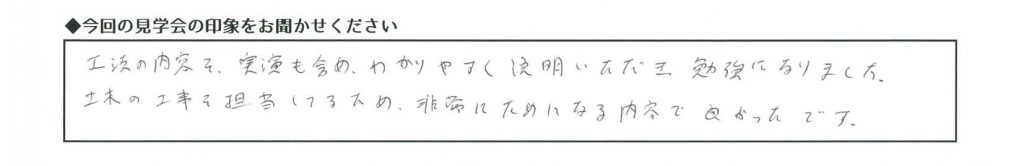 ◆今回の見学会の印象をお聞かせください
工法の内容を、実演も含め、わかりやすく説明いただき 勉強になりました。
土木の工事を担当してるため、非常にためになる内容で 良かったです。